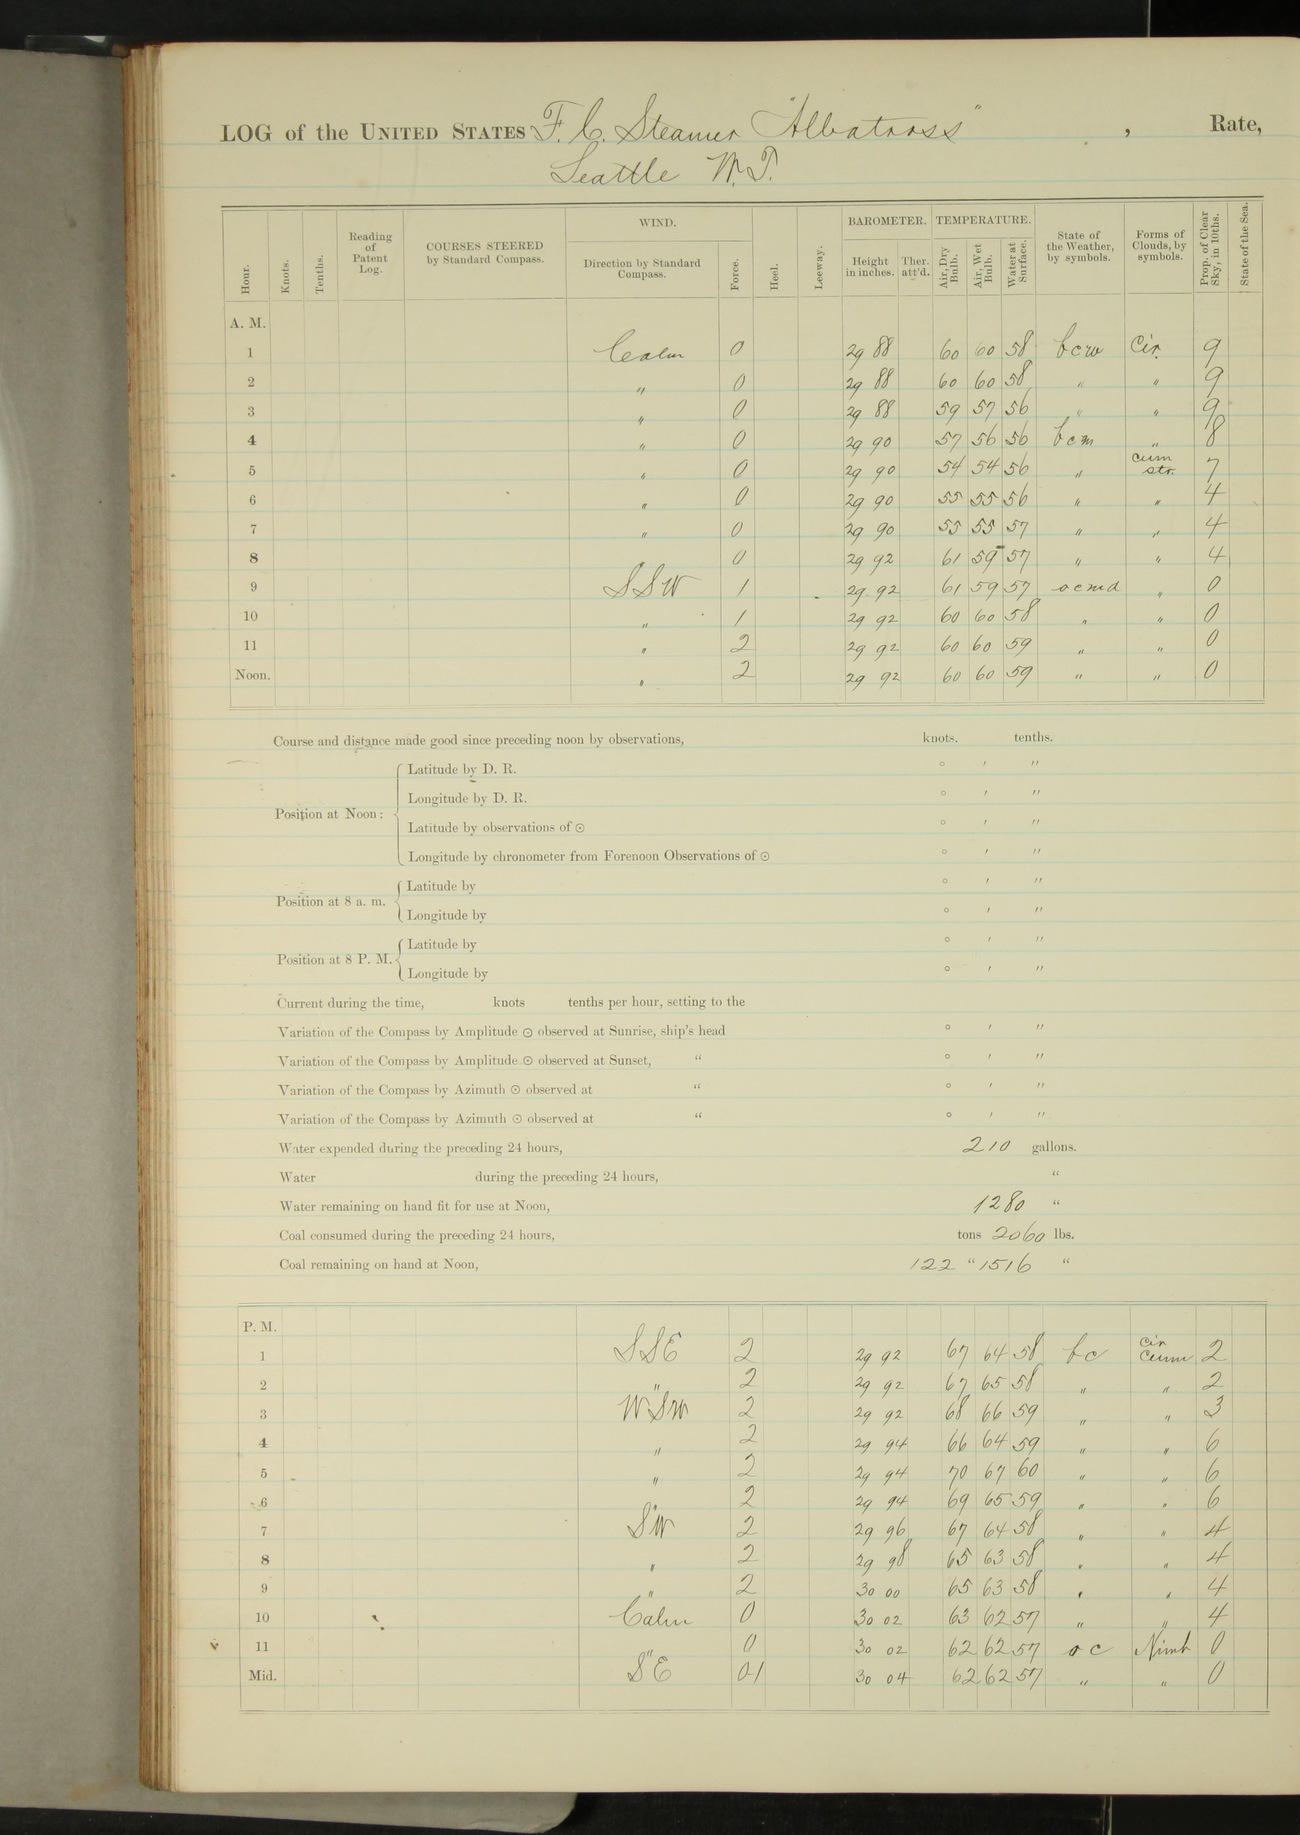 LOG of the UNITED STATES F. C. Steamer "Albatross", Rate,
Seattle W. T.
Hour. Knots. Tenths. Reading of Patent Log. COURSES STEERED by Standard Compass. WIND. Direction by Standard Compass. Force. Heel. Leeway. BAROMETER. Height in inches. Ther. att'd. TEMPERATURE. Air, Dry Bulb. Air, Wet Bulb. Water at Surface. State of the Weather, by symbols. Forms of Clouds, by symbols. Prop. of Clear Sky, in 10ths. State of the Sea.
A. M.
1 Calm 0 29 88 60 60 58 bcw Cir. 9
2 " 0 29 88 60 60 58 " " 9
3 " 0 29 88 59 57 56 " " 9
4 " 0 29 90 57 56 56 bcm " 8
5 " 0 29 90 54 54 56 " Cum str. 7
6 " 0 29 90 55 55 56 " " 4
7 " 0 29 90 55 55 57 " " 4
8 0 29 92 61 59 57 " " 4
9 SSW 1 29 92 61 59 57 ocmd " 0
10 " 1 29 92 60 60 58 " " 0
11 " 2 29 92 60 60 59 " " 0
Noon. " 2 29 92 60 60 59 " " 0
Course and distance made good since preceding noon by observations, knots. tenths.
Position at Noon: Latitude by D. R. ° ′ ″
Longitude by D. R. ° ′ ″
Latitude by observations of ⊙ ° ′ ″
Longitude by chronometer from Forenoon Observations of ⊙ ° ′ ″
Position at 8 a. m. Latitude by ° ′ ″
Longitude by ° ′ ″
Position at 8 P. M. Latitude by ° ′ ″
Longitude by ° ′ ″
Current during the time, knots tenths per hour, setting to the
Variation of the Compass by Amplitude ⊙ observed at Sunrise, ship's head ° ′ ″
Variation of the Compass by Amplitude ⊙ observed at Sunset, " ° ′ ″
Variation of the Compass by Azimuth ⊙ observed at " ° ′ ″
Variation of the Compass by Azimuth ⊙ observed at " ° ′ ″
Water expended during the preceding 24 hours, 210 gallons.
Water during the preceding 24 hours, "
Water remaining on hand fit for use at Noon, 1280 "
Coal consumed during the preceding 24 hours, tons 2060 lbs.
Coal remaining on hand at Noon, 122 " 1516 "
P. M.
1 SSE 2 29 92 67 64 58 bc Cir Cum 2
2 " 2 29 92 67 65 58 " " 2
3 WSW 2 29 92 68 66 59 " " 3
4 " 2 29 94 66 64 59 " " 6
5 " 2 29 94 70 67 60 " " 6
6 " 2 29 94 69 65 59 " " 6
7 SW 2 29 96 67 64 58 " " 4
8 " 2 29 98 65 63 58 " " 4
9 " 2 30 00 65 63 58 " " 4
10 Calm 0 30 02 63 62 57 " " 4
11 " 0 30 02 62 62 57 oc Nimb 0
Mid. SE 0-1 30 04 62 62 57 " " 0